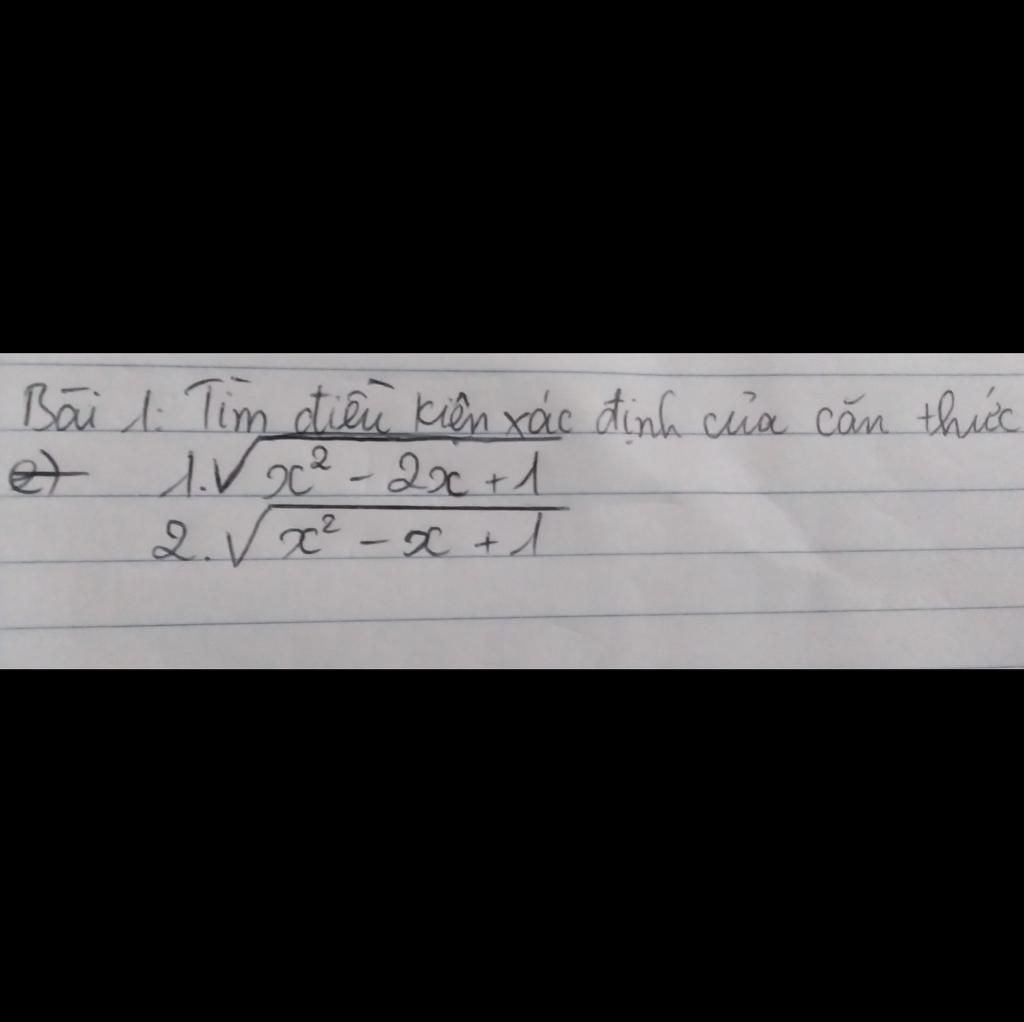 Bài 1: Tìm điều kiện xác định của căn thức
1. √x² - 2x + 1
2. √x² - x + 1